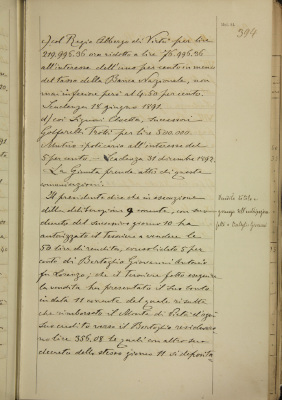 394
c) col Regio Albergo di Virtù per lire
219,995.36 ora ridotto a lire 76,995.36
all'interesse dell'uno per cento in meno
del tasso della Banca Nazionale, non
mai inferiore però al 4.50 per cento.
Scadenza 18 giugno 1891.
d) coi Signori successori
per lire 500.000.
Mutuo ipotecario all'interesse del
5 per cento. — Scadenza 31 dicembre 1892.
La Giunta prende atto di queste
comunicazioni.
Il presidente dice che in esecuzione
della deliberazione 9 corrente, con suo
decreto del successivo giorno 10 ha
autorizzato il tesoriere a vendere la
di rendita, consolidato 5 per
cento di Bertoglio Giovanni Antonio
fu Lorenzo; che il Tesoriere fatta eseguire
la vendita ha presentato il suo conto
in data 11 corrente dal quale risulta
che rimborsato il Monte di Pietà d'ogni
suo credito verso il Bertoglio residuavano
lire 356,08 le quali con altro suo
decreto dello stesso giorno 11 si deposita
Bertoglio Giovanni